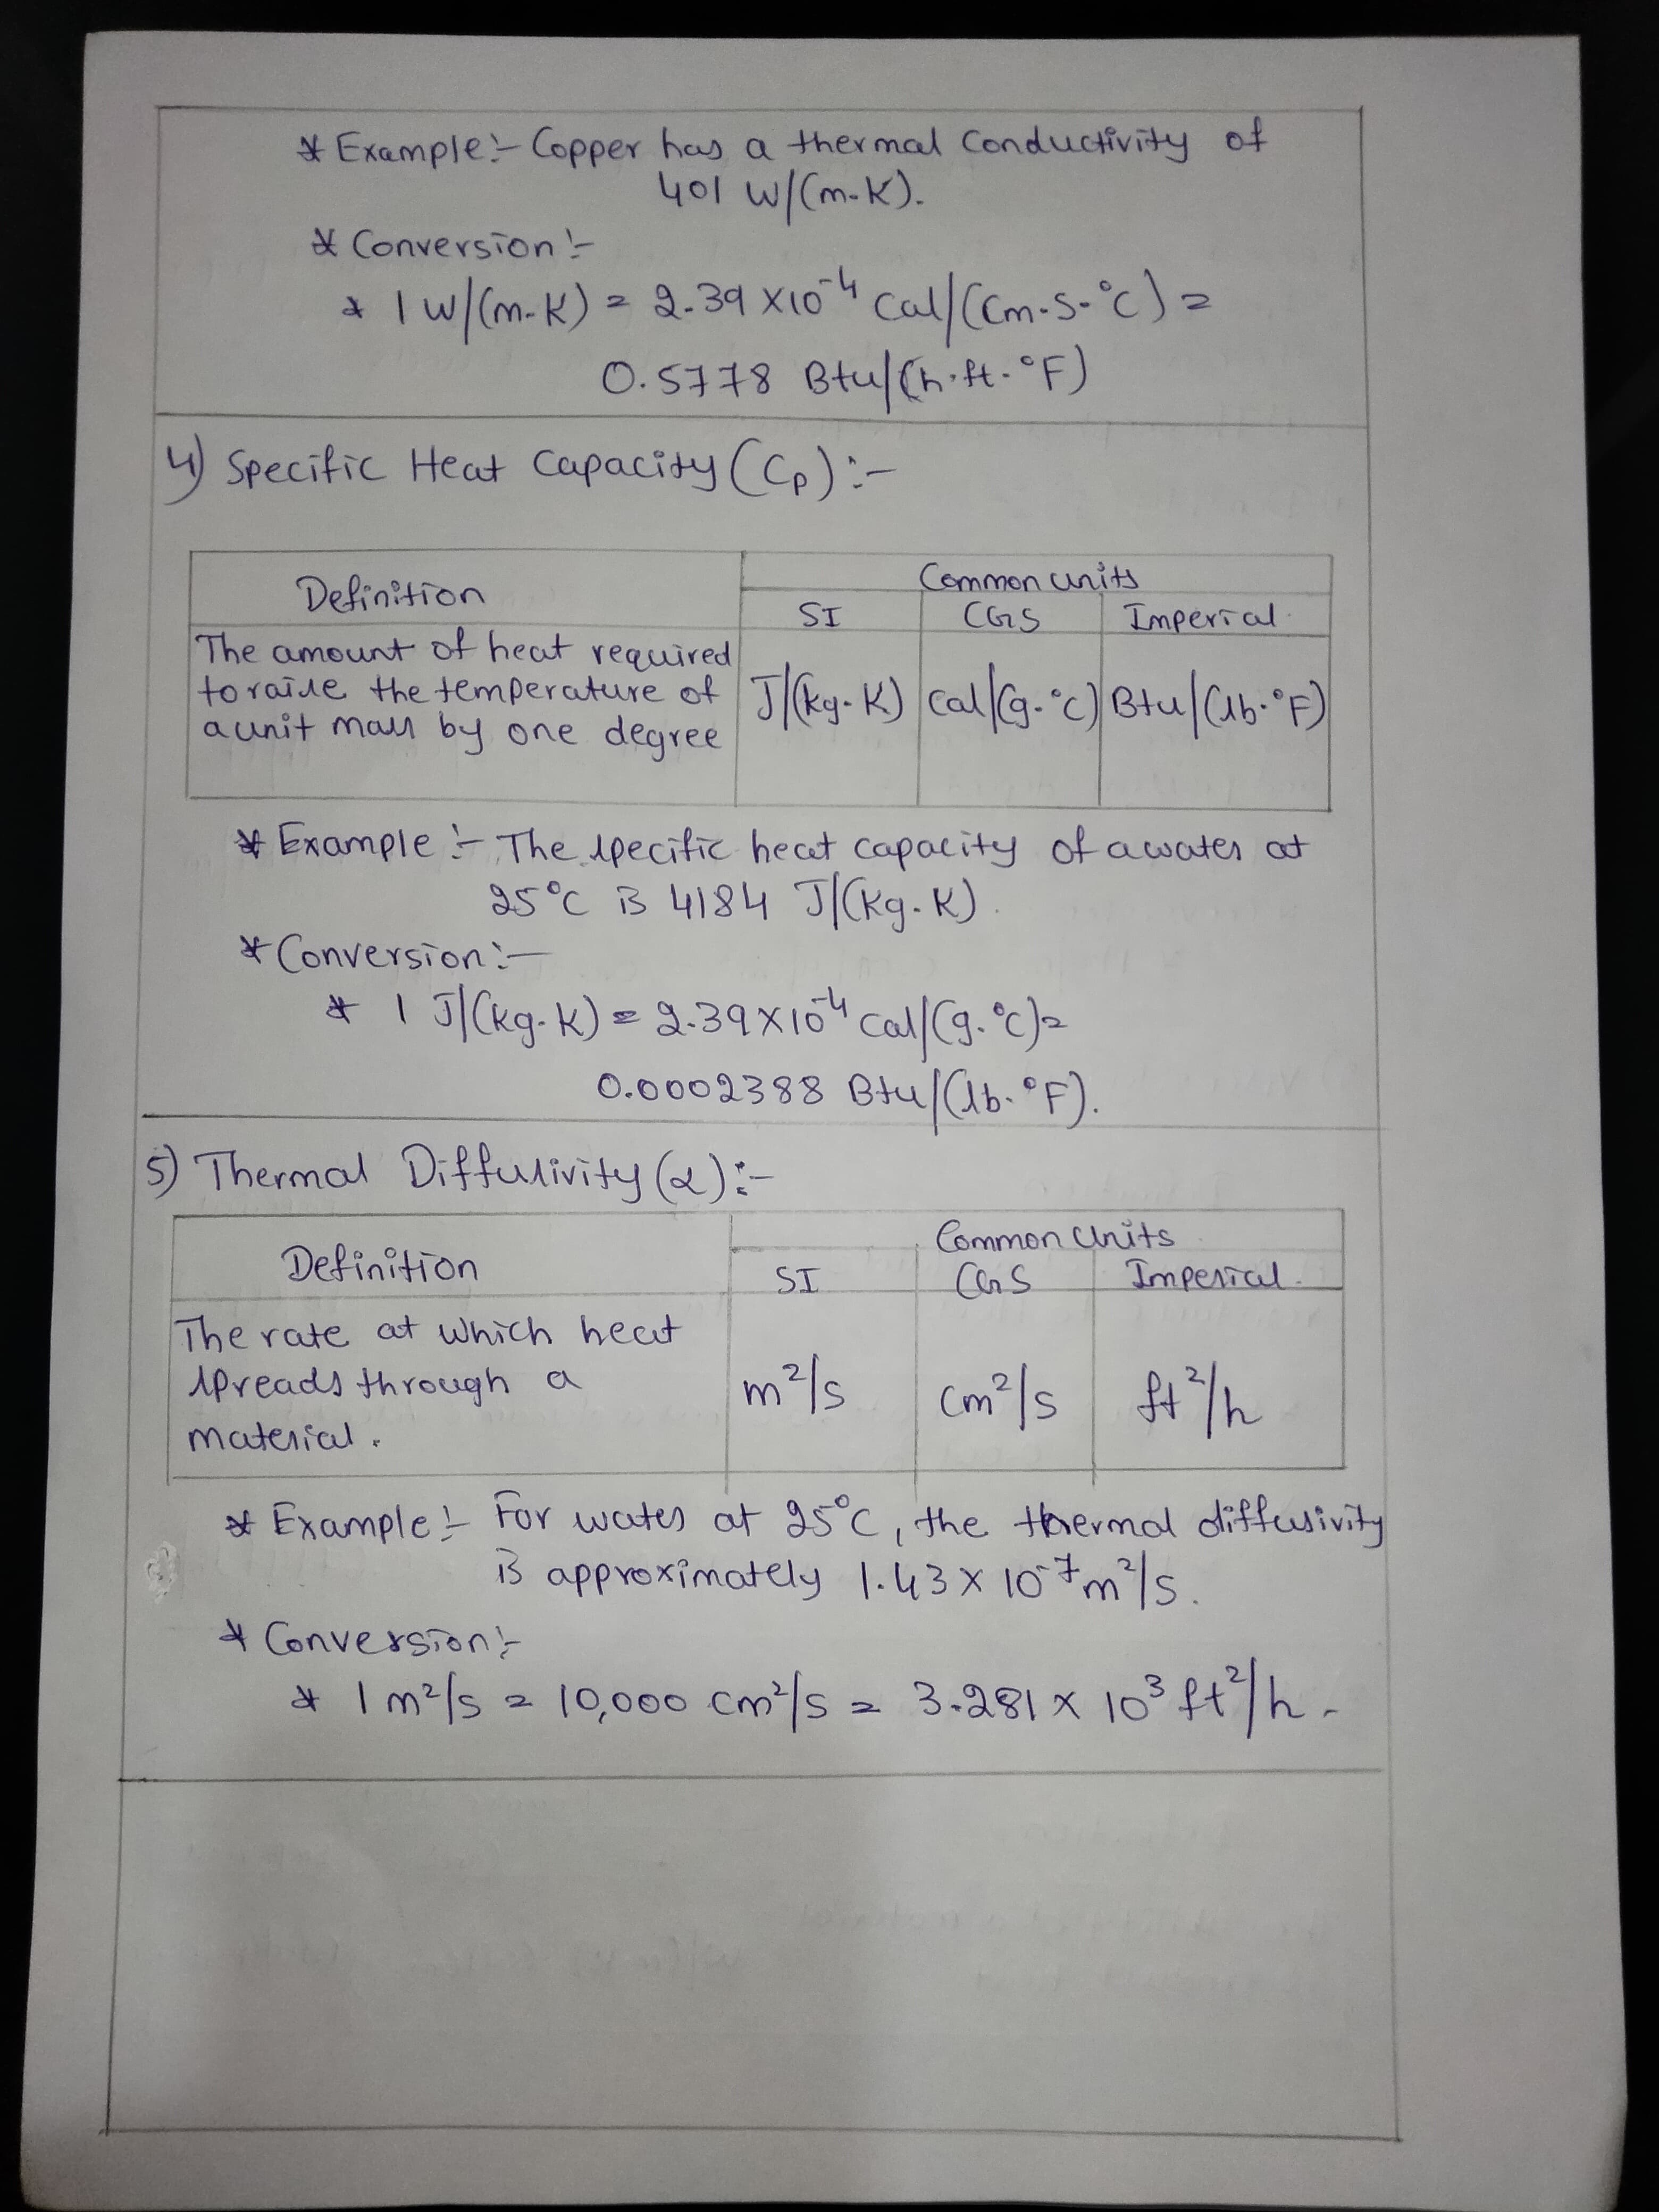 * Example:- Copper has a thermal Conductivity of
401 W/(m-K).
* Conversion:-
* 1 W/(m-K) = 2.39 X10⁻⁴ Cal/(Cm-S-°C) =
0.5778 Btu/(h·ft-°F)
4) Specific Heat Capacity (Cp):-
Definition
Common units
SI CGS Imperial
The amount of heat required
to raise the temperature of
a unit mass by one degree
J/(kg-K) Cal/(g-°C) Btu/(lb-°F)
* Example:- The specific heat capacity of a water at
25°C is 4184 J/(Kg-K)
* Conversion:-
* 1 J/(kg-K) = 2.39X10⁻⁴ Cal/(g.°C)=
0.0002388 Btu/(lb.°F).
5) Thermal Diffusivity (α):-
Definition
Common Units
SI CGS Imperial
The rate at which heat
spreads through a
material.
m²/s Cm²/s ft²/h
* Example:- For water at 25°C, the thermal diffusivity
is approximately 1.43 X 10⁻⁷ m²/s.
* Conversion:-
* 1 m²/s = 10,000 cm²/s = 3.281 x 10³ ft²/h.